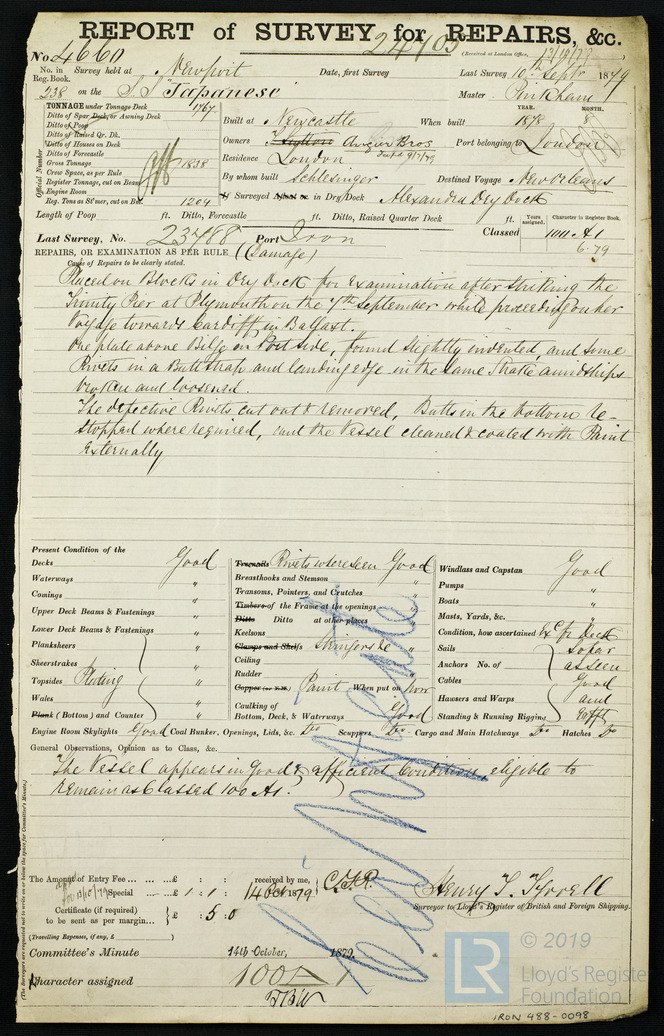 REPORT of SURVEY for REPAIRS, &c.
No. 4660
24703
(Received at London Office, 13/10/79
No. in Reg. Book. Survey held at Newport Date, first Survey Last Survey 10th Septr 1879
238 on the SS "Japanese" Master Pinkham
TONNAGE under Tonnage Deck 1767
Ditto of Spar Deck, or Awning Deck
Ditto of Poop
Ditto of Raised Qr. Dk.
Ditto of Houses on Deck
Ditto of Forecastle
Gross Tonnage 1838
Crew Space, as per Rule
Register Tonnage, cut on Beam
Engine Room
Reg. Tons as St'mer, cut on Bm. 1204
Official Number
Built at Newcastle When built YEAR. 1878 MONTH. 8
Owners Angier Bros Port belonging to London
Residence London
By whom built Schlesinger Destined Voyage New Orleans
If Surveyed Afloat or in Dry Dock Alexandra Dry Dock
Length of Poop ft. Ditto, Forecastle ft. Ditto, Raised Quarter Deck ft.
Years assigned. Character in Register Book.
Classed 100 A1
6.79
Last Survey, No. 23788 Port Iron
REPAIRS, OR EXAMINATION AS PER RULE (Damage)
Cause of Repairs to be clearly stated.
Placed on Blocks in Dry Dock for examination after striking the
Trinity Pier at Plymouth on the 7th September while proceeding on her
Voyage towards Cardiff in Ballast.
One plate above Bilge on Port side, found slightly indented, and some
Rivets in a Buttstrap and landing edge in the same Strake amidships
broken and loosened.
The defective Rivets cut out & renewed, Butts in the bottom re-
stopped where required, and the Vessel cleaned & coated with Paint
Externally
Present Condition of the
Decks Good
Waterways "
Comings "
Upper Deck Beams & Fastenings "
Lower Deck Beams & Fastenings "
Planksheers "
Sheerstrakes "
Topsides Plating "
Wales "
Plank (Bottom) and Counter "
Engine Room Skylights Good Coal Bunker, Openings, Lids, &c. Do Scuppers Do Cargo and Main Hatchways Do Hatches Do
Treenails Rivets where seen Good
Breasthooks and Stemson "
Transoms, Pointers, and Crutches "
Timbers of the Frame at the openings "
Ditto Ditto at other places "
Keelsons "
Clamps and Shelfs Stringers &c "
Ceiling "
Rudder "
Copper (or Y.M.) Paint When put on Now
Caulking of Bottom, Deck, & Waterways Good
Windlass and Capstan Good
Pumps "
Boats "
Masts, Yards, &c. "
Condition, how ascertained Ex fr deck
Sails so far
Anchors No. of as seen
Cables Good
Hawsers and Warps and
Standing & Running Rigging
General Observations, Opinion as to Class, &c.
The Vessel appears in Good & efficient Condition, eligible to
remain as Classed 100 A1.
The Amount of Entry Fee ... ... £ : : received by me,
Special ... £ 1 : 1 : 14 Oct 1879 C.F.R.
Certificate (if required) to be sent as per margin... £ : 5 : 0
(Travelling Expenses, if any, £ )
Henry T. Tyrrell
Surveyor to Lloyd's Register of British and Foreign Shipping.
Committee's Minute 14th October, 1879.
Character assigned 100A1
(The Surveyors are requested not to write on or below the space for Committee's Minute.)
© 2019
LR
Lloyd's Register
Foundation
IRON 488-0098